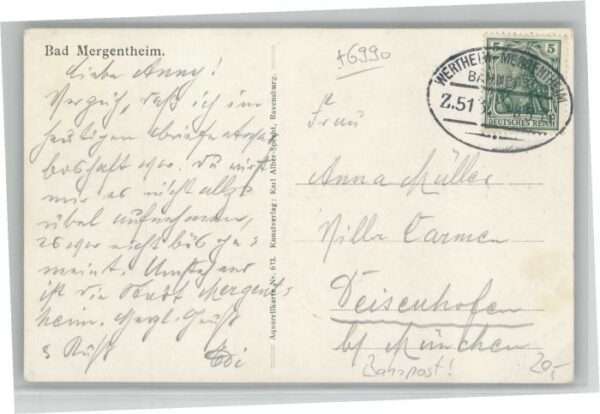 Bad Mergentheim.
+6990
Liebe Anny!
Verzeih, daß ich im
heutigen Briefe etwas
boshaft war. Du wirst
mir es nicht allzu
übel aufnehmen,
es war nicht bös ge=
meint. Umstehend
ist die Stadt Mergent=
heim. Herzl. Grüße
& Kuß
Edi
Aquarellkarte Nr. 613. Kunstverlag: Karl Alber-Specht, Ravensburg.
WERTHEIM-MERGENTHEIM
BAHNPOST
Z.51
5 5
DEUTSCHES REICH
Frau
Anna Müller
Villa Carmen
Deisenhofen
b/ München
Bahnpost!
20,-